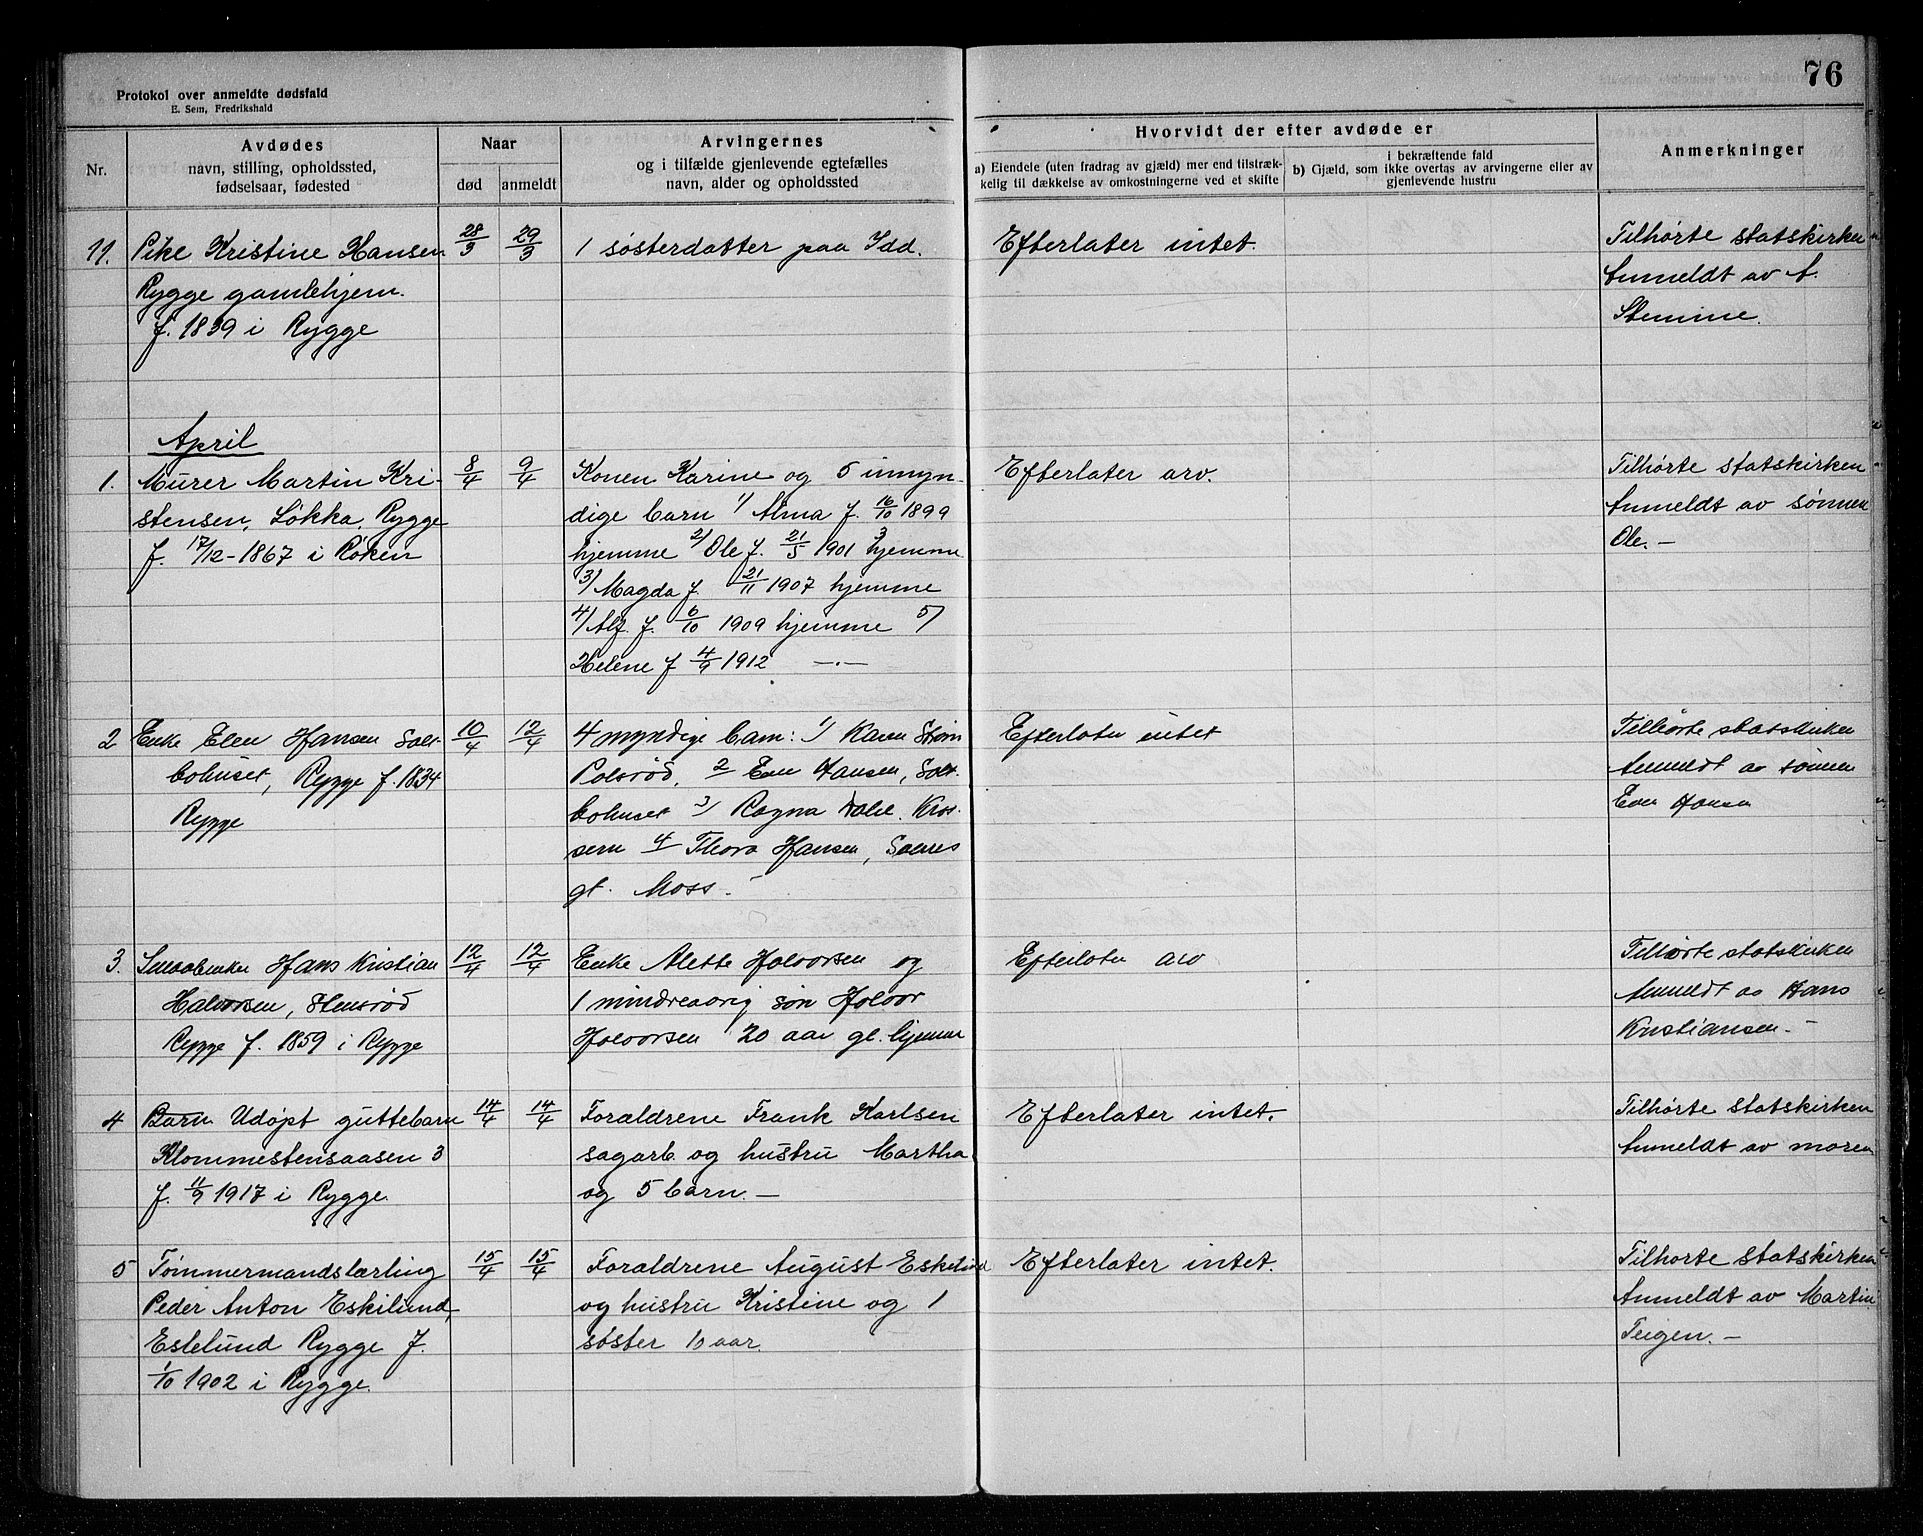 76
Protokol over anmeldte dødsfald
E. Sem, Fredrikshald
Nr.
Avdødes
navn, stilling, opholdssted,
fødselsaar, fødested
Naar
død
anmeldt
Arvingernes
og i tilfælde gjenlevende egtefælles
navn, alder og opholdssted
Hvorvidt der efter avdøde er
a) Eiendele (uten fradrag av gjæld) mer end tilstræk-
kelig til dækkelse av omkostningerne ved et skifte
i bekræftende fald
b) Gjæld, som ikke overtas av arvingerne eller av
gjenlevende hustru
Anmerkninger
11.
Pike Kristine Hansen
Rygge gamlehjem.
f. 1839 i Rygge
28/3
29/3
1 søsterdatter paa Idd.
Efterlater intet.
Tilhørte statskirken
Anmeldt av A.
Stemme.
April
1.
Murer Martin Kri-
stensen, Løkka, Rygge
f. 17/12-1867 i Røken
8/4
9/4
Konen Karine og 5 umyn-
dige barn 1) Alma f. 16/10 1899
hjemme 2) Ole f. 21/5 1901 hjemme
3) Magda f. 21/11 1907 hjemme
4) Alf. f. 6/10 1909 hjemme 5)
Helene f 4/9 1912 —.—
Efterlater arv.
Tilhørte statskirken
Anmeldt av sønnen
Ole.—
2
Enke Elen Hansen Solt-
bohuset, Rygge f. 1834
Rygge
10/4
12/4
4 myndige barn: 1) Karen Strøm
Polsrød, 2 Even Hansen, Solt-
bohuset 3) Ragna
4 Thora Hansen,
gt. Moss.
Efterlater intet
Tilhørte statskirken
Anmeldt av sønnen
Even Hansen
3.
Smaabruker Hans Kristian
Halvorsen, Stensrød
Rygge f. 1859 i Rygge
12/4
12/4
Enke Alette Halvorsen og
1 mindreaarig søn Halvor
Halvorsen 20 aar gl. hjemme
Efterlater arv
Tilhørte statskirken
Anmeldt av Hans
Kristiansen.—
4
Barn Udøpt guttebarn
Klommestensaasen 3
f. 11/9 1917 i Rygge.
14/4
14/4
Forældrene Frank Karlsen
sagarb. og hustru Martha
og 5 barn.—
Efterlater intet.
Tilhørte statskirken
Anmeldt av moren
5
Tømmermandslærling
Peder Anton Eskilund,
Eskelund Rygge f.
1/10 1902 i Rygge.
15/4
15/4
Forældrene August Eskelund
og hustru Kristine og 1
søster 10 aar.
Efterlater intet.
Tilhørte statskirken
Anmeldt av Martin
Teigen.—